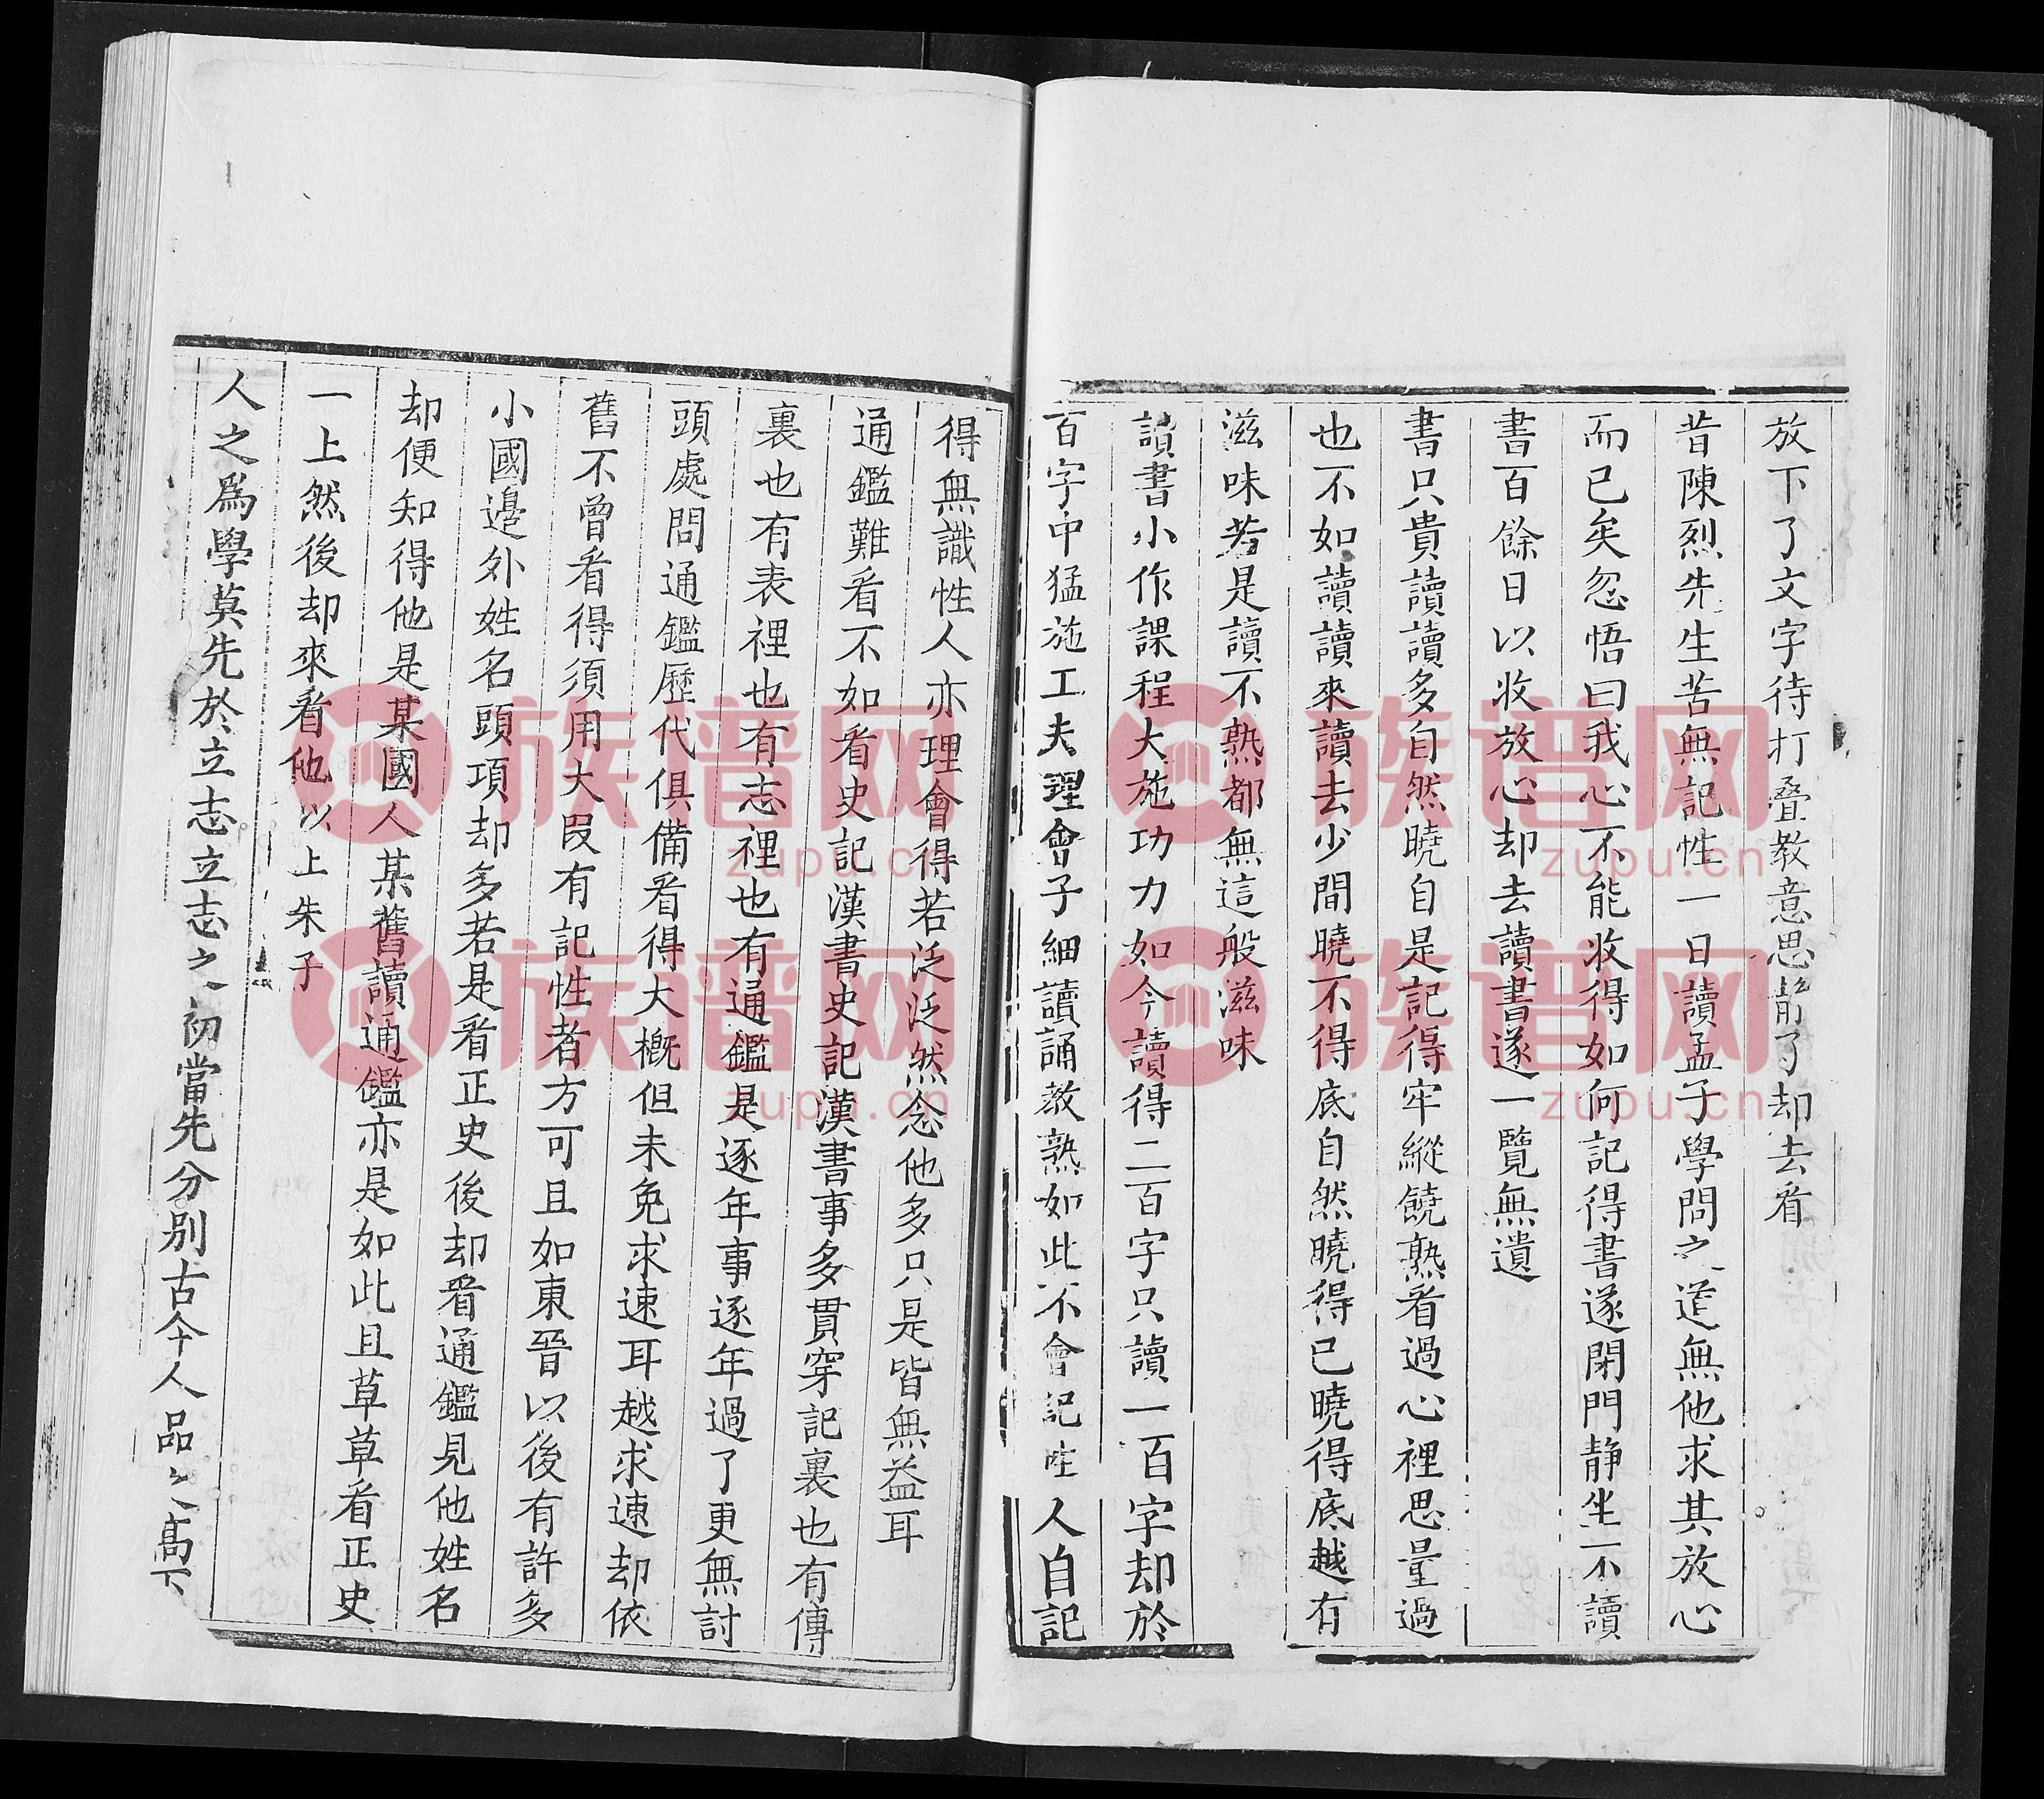 放下了文字待打疊教意思靜了却去看
昔陳烈先生苦無記性一日讀孟子學問之道無他求其放心
而已矣忽悟曰我心不能收得如何記得書遂閉門静坐不讀
書百餘日以收放心却去讀書遂一覽無遺
書只貴讀讀多自然曉自是記得牢縱饒熟看過心裡思量過
也不如讀讀來讀去少間曉不得底自然曉得已曉得底越有
滋味若是讀不熟都無這般滋味
讀書小作課程大施功力如今讀得二百字只讀一百字却於
百字中猛施工夫理會子細讀誦教熟如此不會記性人自記
得無識性人亦理會得若泛泛然念他多只是皆無益耳
通鑑難看不如看史記漢書史記漢書事多貫穿記裏也有傳
裏也有表裡也有志裡也有通鑑是逐年事逐年過了更無討
頭處問通鑑歷代俱備看得大槪但未免求速耳越求速却依
舊不曾看得須用大叚有記性者方可且如東晉以後有許多
小國邉外姓名頭項却多若是看正史後却看通鑑見他姓名
却便知得他是某國人某舊讀通鑑亦是如此且草草看正史
一上然後却來看他以上朱子
人之爲學莫先於立志立志之初當先分別古今人品之高下
族谱网
zupu.cn
族谱网
zupu.cn
族谱网
zupu.cn
族谱网
zupu.cn